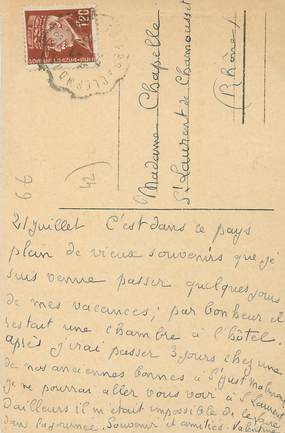 1F20
Madame Chapelle
St Laurent de Chamousset
(Rhône)
42
69
21 juillet C'est dans ce pays
plein de vieux souvenirs que je
suis venue passer quelques jours
de mes vacances; par bonheur il
restait une chambre à l'hôtel.
après j'irai passer 3 jours chez une
de nos anciennes bonnes à St Just
je ne pourrai aller vous voir à St Laurent
D'ailleurs il m'etait impossible de
dans la journée. Souvenir et amitiés. Valentine